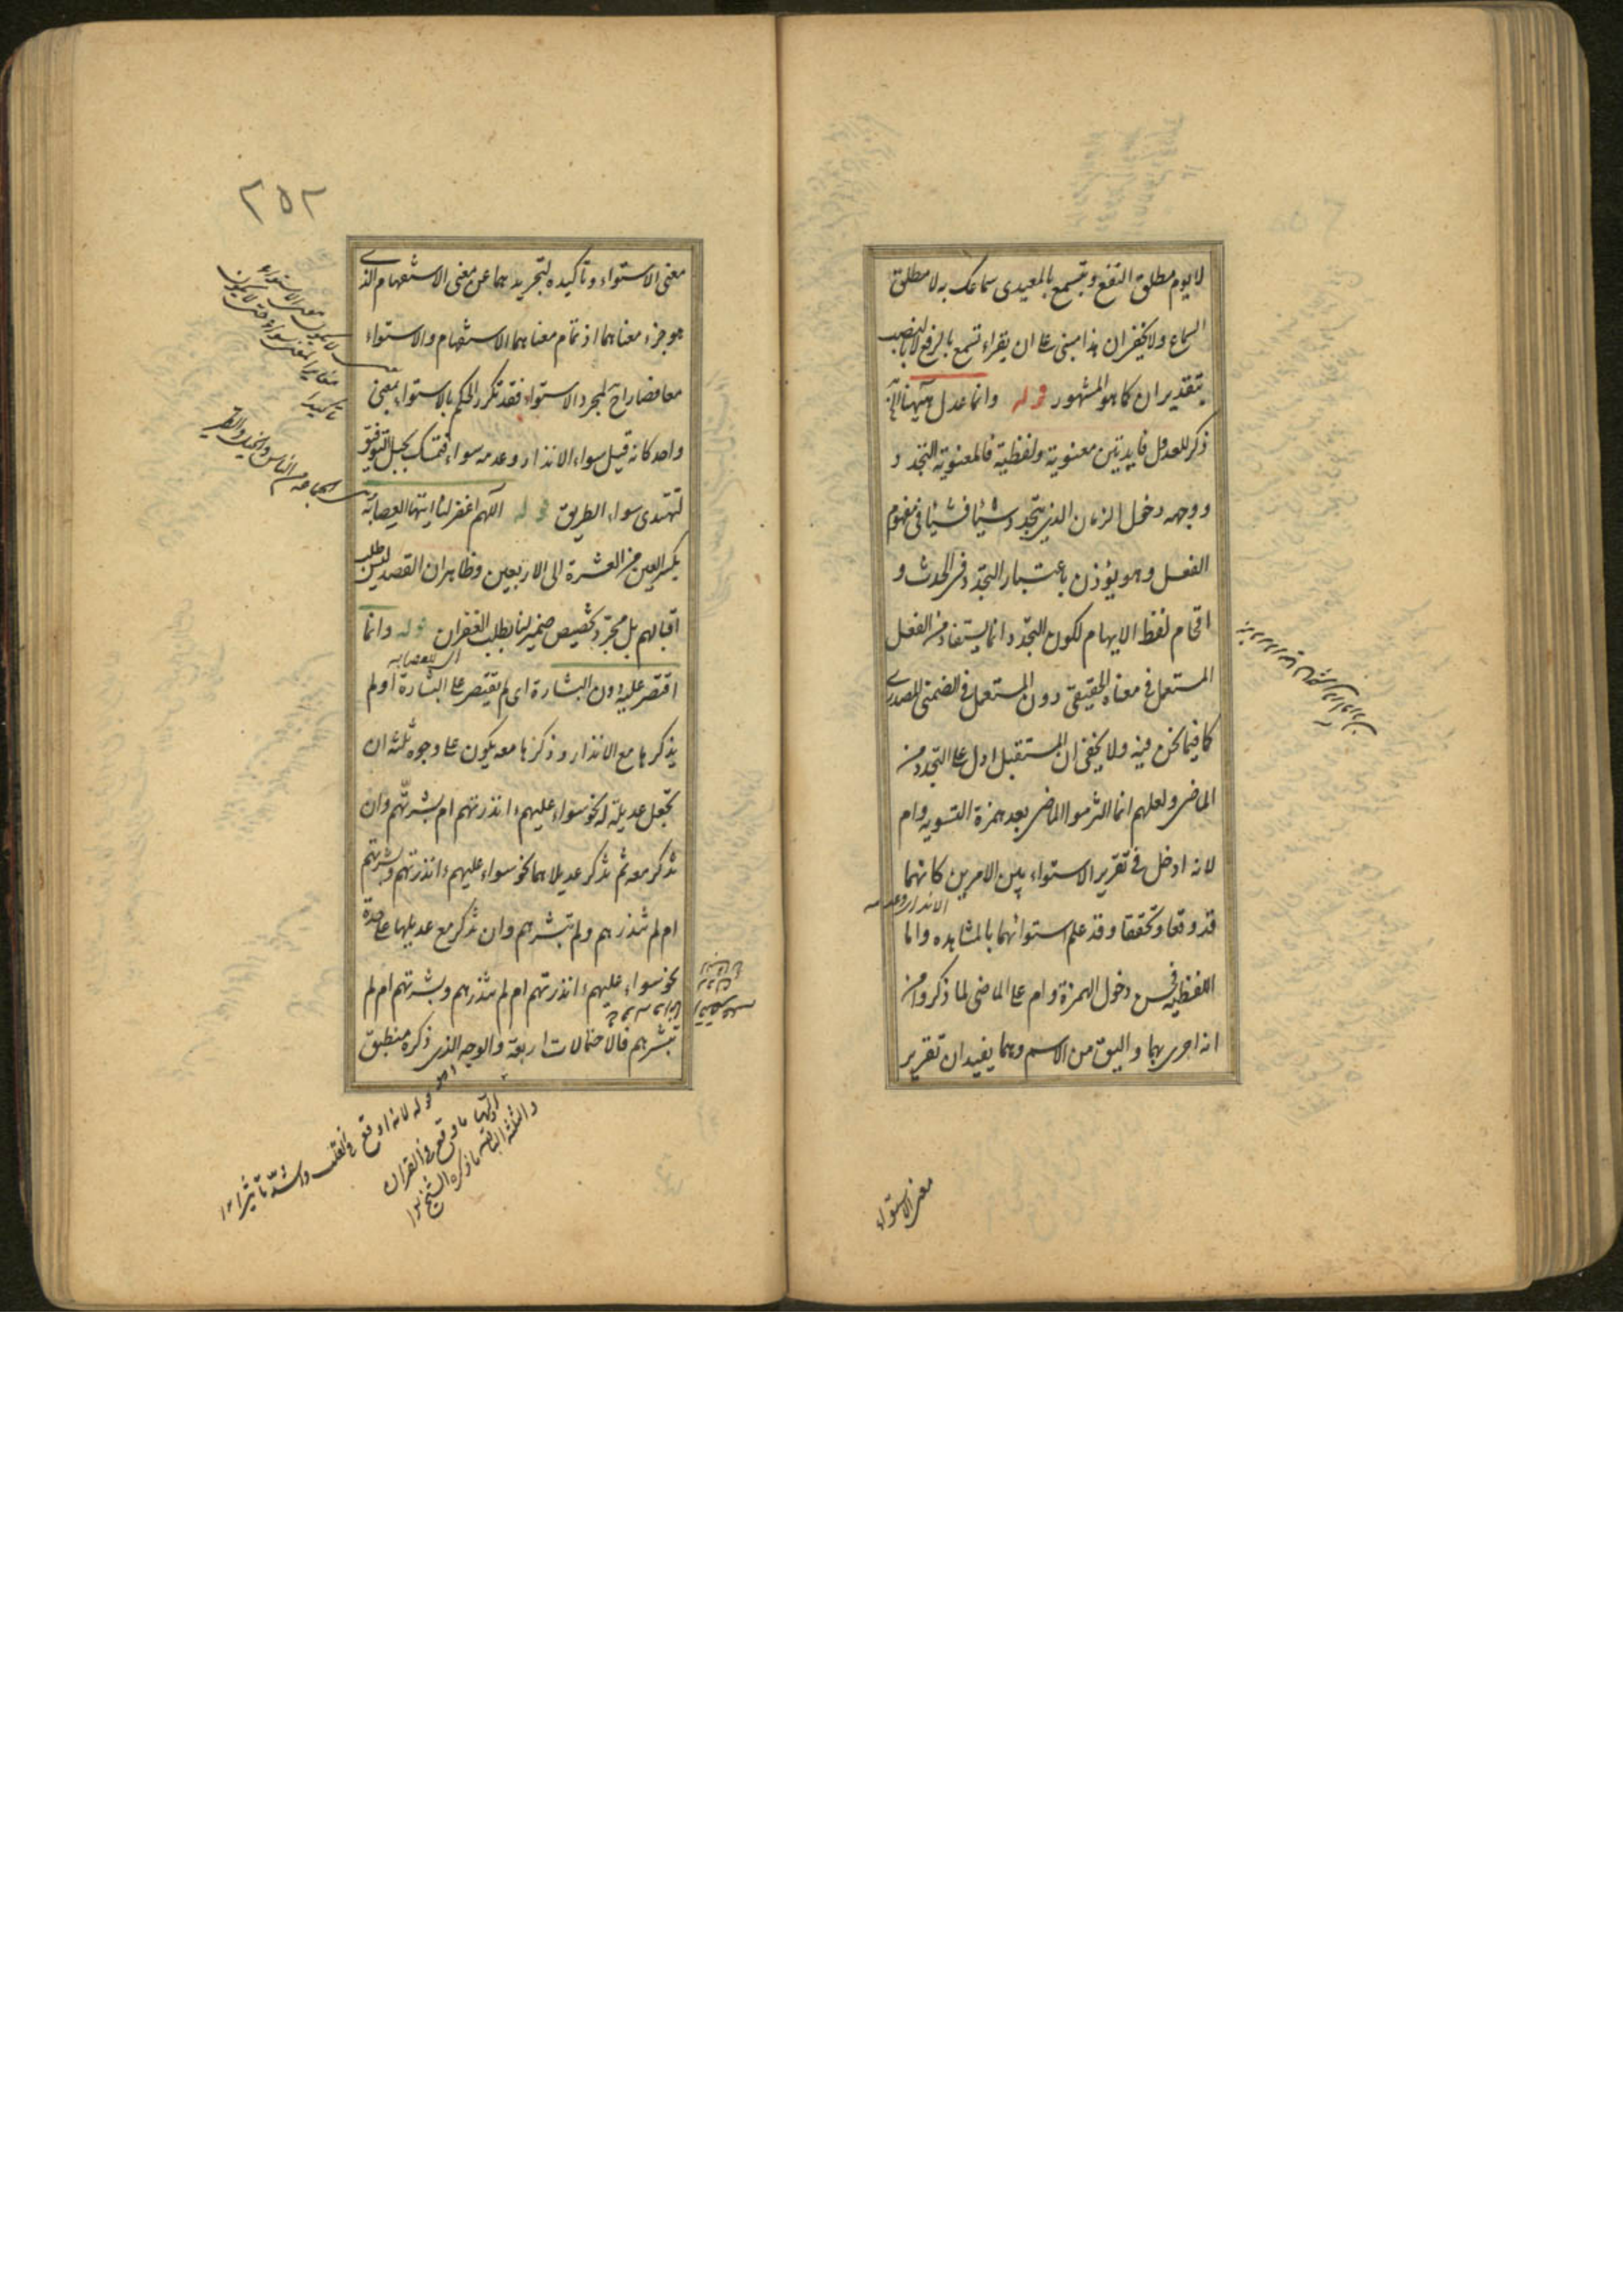 لايوم مطلق النفع وبتسمع بالمعيدى سماعك به لا مطلق
السماع ولا يخفى ان هذا مبنى على ان يقراء تسمع بالرفع لا بالنصب
بتقدير ان كما هو المشهور قوله وانما عدل ههنا الخ
ذكر للعدول فايدتين معنوية ولفظية فالمعنوية التجدد و
ووجهه دخول الزمان الذى يتجدد شيئا فشيئا فى مفهوم
الفعل وهو يؤذن باعتبار التجدد فى الحدث و
اقحام لفظ الايهام لكون التجدد انما يستفاد من الفعل
المستعمل فى معناه الحقيقى دون المستعمل فى الضمنى المصدرى
كما فيما نحن فيه ولا يخفى ان المستقبل ادل على التجدد من
الماضى ولعلهم انما التزموا الماضى بعد همزة التسويه وام
لانه ادخل فى تقرير الاستواء بين الامرين كانهما
الانذار وعدمه
قد وقعا وتحققا وقد علم استوائهما بالمشاهده واما
اللفظيه فحسن دخول الهمزة وام على الماضى لما ذكروا من
انه احرى بهما واليق من الاسم وهما يفيدان تقرير
معنى الاستواء
٢٥٢
معنى الاستواء وتأكيده لتجريدهما عن معنى الاستفهام الذى
هو جزء معناهما اذ تمام معناهما الاستفهام والاستواء
معا فصارا لمجرد الاستواء فقد تكرر الحكم بالاستواء بمعنى
واحد كانه قيل سواء الانذار وعدمه سواء فتمسك بحبل التوفيق
لتهتدى سواء الطريق قوله اللهم اغفر لنا ايتها العصابة
بكسر العين من العشرة الى الاربعين وظاهر ان القصد ليس لطلب
اقبالهم بل مجرد تخصيص ضمير لنا بطلب الغفران قوله وانما
اى للعصابه
اقتصر عليه دون البشارة اى لم يقتصر على البشارة او لم
يذكرها مع الانذار وذكرها معه يكون على وجوه ثلثه ان
تجعل عديلة له نحو سواء عليهم ءانذرتهم ام بشرتهم وان
تذكر معه ثم تذكر عديلاهما نحو سواء عليهم ءانذرتهم وبشرتهم
ام لم تنذرهم ولم تبشرهم وان تذكر مع عديلها على حدة
نحو سواء عليهم ءانذرتهم ام لم تنذرهم وبشرتهم ام لم
تبشرهم فالاحتمالات اربعة والوجه الذى ذكره منطبق
معنى الاستواء
تاكيدا
قوله لانه اوقع فى القلب واشد تاثيرا ١٢
ما وقع فى القران
والثلثة الباقية ما ذكره الشيخ ١٢